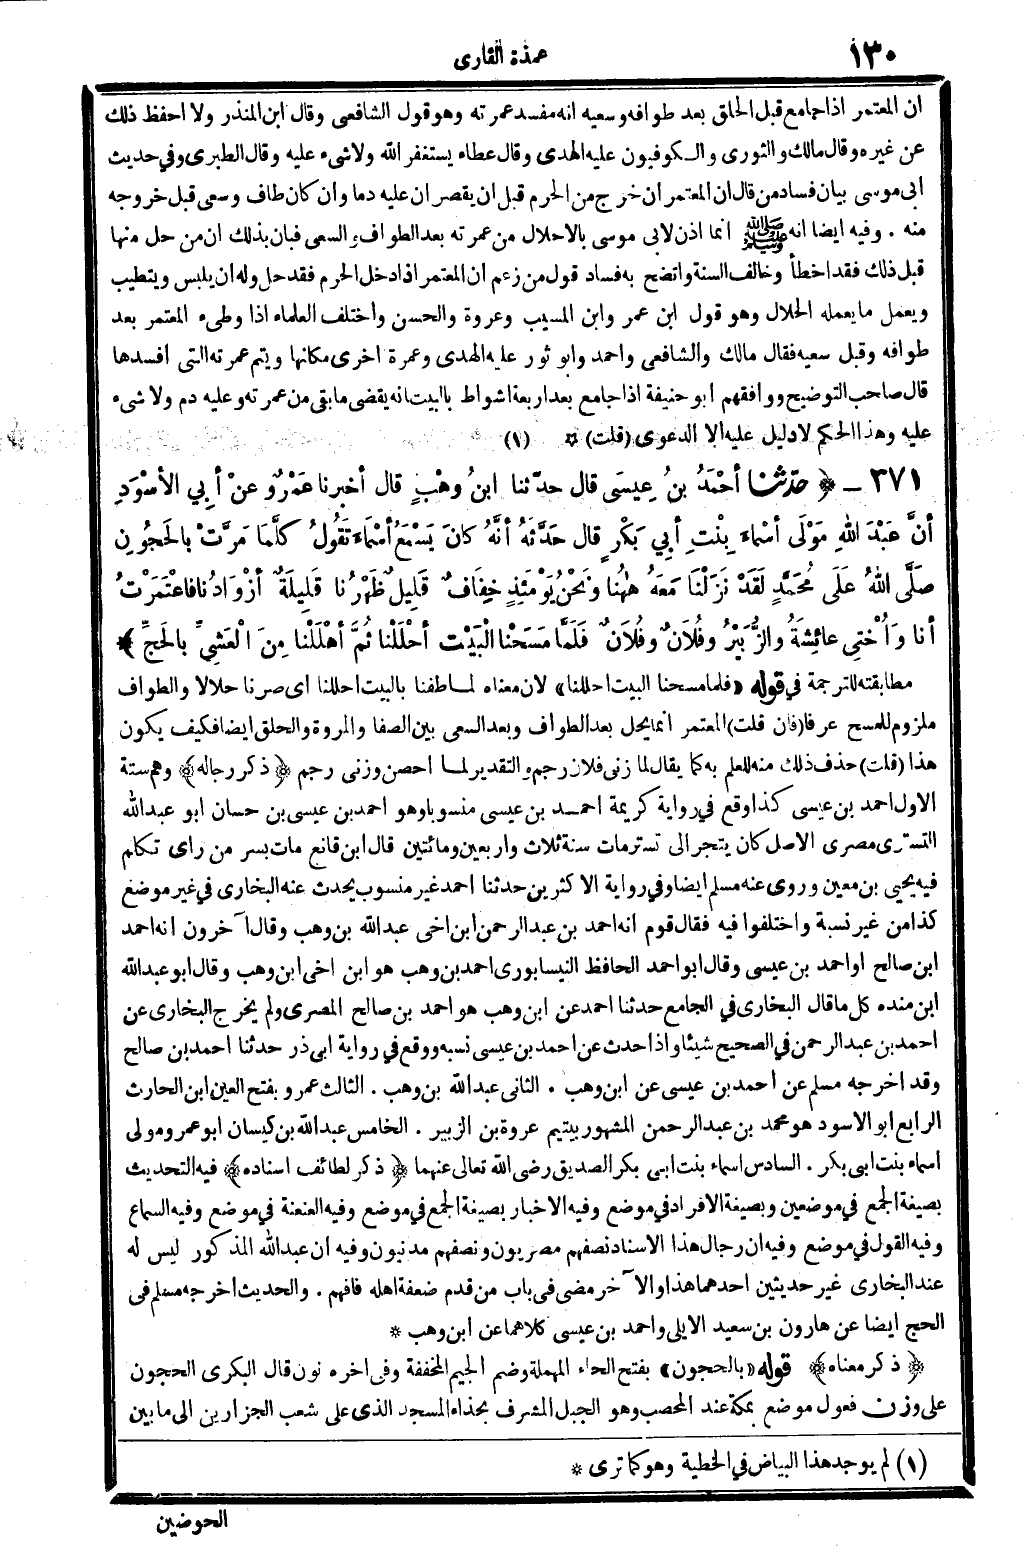 ١٣٠
عمدة القارى
ان المعتمر اذا جامع قبل الحلق بعد طوافه وسعيه انه مفسد عمرته وهو قول الشافعى وقال ابن المنذر ولا احفظ ذلك
عن غيره وقال مالك والثورى والكوفيون عليه الهدى وقال عطاء يستغفر الله ولاشىء عليه وقال الطبرى وفى حديث
ابى موسى بيان فساد من قال ان المعتمر ان خرج من الحرم قبل ان يقصر ان عليه دما وان كان طاف وسعى قبل خروجه
منه . وفيه ايضا انه ﷺ انما اذن لابى موسى بالاحلال من عمرته بعد الطواف والسعى فبان بذلك ان من حل منها
قبل ذلك فقد اخطأ وخالف السنة واتضح به فساد قول من زعم ان المعتمر اذا دخل الحرم فقد حل وله ان يلبس ويتطيب
ويعمل ما يعمله الحلال وهو قول ابن عمر وابن المسيب وعروة والحسن واختلف العلماء اذا وطىء المعتمر بعد
طوافه وقبل سعيه فقال مالك والشافعى واحمد وابو ثور عليه الهدى وعمرة اخرى مكانها ويتم عمرته التى افسدها
قال صاحب التوضيح ووافقهم ابو حنيفة اذا جامع بعد اربعة اشواط بالبيت انه يقضى ما بقى من عمرته وعليه دم ولا شىء
عليه وهذا الحكم لا دليل عليه الا الدعوى (قلت) * (١)
٣٧١ ـ ﴿ حَدَّثَنَا أَحْمَدُ بنُ عِيسَى قال حدّثنا ابنُ وهْبٍ قال أخبرنا عَمْرٌو عنْ أبي الأسْوَدِ
أنَّ عَبْدَ اللهِ مَوْلَى أسْماءَ بِنْتِ أبِي بَكْرٍ قال حَدَّثَهُ أنَّهُ كانَ يَسْمَعُ أسْماءَ تَقُولُ كُلَّمَا مَرَّتْ بالحَجُونِ
صَلَّى اللهُ عَلَى مُحَمَّدٍ لَقَدْ نَزَلْنَا مَعَهُ هٰهُنا ونَحْنُ يَوْمَئِذٍ خِفَافٌ قَلِيلٌ ظَهْرُنا قَلِيلَةٌ أزْوَادُنا فاعْتَمَرْتُ
أنا وَأُخْتِي عائِشَةُ والزُّبَيْرُ وفُلاَنٌ وفُلاَنٌ فَلَمَّا مَسَحْنا البَيْتَ أحْلَلْنا ثُمَّ أهْلَلْنا مِنَ العَشِيِّ بالحَجِّ ﴾
مطابقته للترجمة فى قوله «فلما مسحنا البيت احللنا» لان معناه لما طفنا بالبيت احللنا اى صرنا حلالا والطواف
ملزوم للمسح عرفا (فان قلت) المعتمر انما يحل بعد الطواف وبعد السعى بين الصفا والمروة والحلق ايضا فكيف يكون
هذا (قلت) حذف ذلك منه للعلم به كما يقال لما زنى فلان رجم والتقدير لما احصن وزنى رجم ﴿ ذكر رجاله ﴾ وهم ستة
الاول احمد بن عيسى كذا وقع فى رواية كريمة احمد بن عيسى منسوبا وهو احمد بن عيسى بن حسان ابو عبدالله
التسترى مصرى الاصل كان يتجر الى تستر مات سنة ثلاث واربعين ومائتين قال ابن قانع مات بسر من راى تكلم
فيه يحيى بن معين وروى عنه مسلم ايضا وفى رواية الاكثرين حدثنا احمد غير منسوب يحدث عنه البخارى فى غير موضع
كذا من غير نسبة واختلفوا فيه فقال قوم انه احمد بن عبد الرحمن ابن اخى عبد الله بن وهب وقال آخرون انه احمد
ابن صالح او احمد بن عيسى وقال ابو احمد الحافظ النيسابورى احمد بن وهب هو ابن اخى ابن وهب وقال ابو عبدالله
ابن منده كل ما قال البخارى فى الجامع حدثنا احمد عن ابن وهب هو احمد بن صالح المصرى ولم يخرج البخارى عن
احمد بن عبد الرحمن فى الصحيح شيئا واذا حدث عن احمد بن عيسى نسبه ووقع فى رواية ابى ذر حدثنا احمد بن صالح
وقد اخرجه مسلم عن احمد بن عيسى عن ابن وهب . الثانى عبد الله بن وهب . الثالث عمرو بفتح العين ابن الحارث
الرابع ابو الاسود هو محمد بن عبد الرحمن المشهور بيتيم عروة بن الزبير . الخامس عبد الله بن كيسان ابو عمرو مولى
اسماء بنت ابى بكر . السادس اسماء بنت ابى بكر الصديق رضى الله تعالى عنهما ﴿ ذكر لطائف اسناده ﴾ فيه التحديث
بصيغة الجمع فى موضعين وبصيغة الافراد فى موضع وفيه الاخبار بصيغة الجمع فى موضع وفيه العنعنة فى موضع وفيه السماع
وفيه القول فى موضع وفيه ان رجال هذا الاسناد نصفهم مصريون ونصفهم مدنيون وفيه ان عبدالله المذكور ليس له
عند البخارى غير حديثين احدهما هذا والآخر مضى فى باب من قدم ضعفة اهله فافهم . والحديث اخرجه مسلم فى
الحج ايضا عن هارون بن سعيد الايلى واحمد بن عيسى كلاهما عن ابن وهب *
﴿ ذكر معناه ﴾ قوله «بالحجون» بفتح الحاء المهملة وضم الجيم المخففة وفى اخره نون قال البكرى الحجون
على وزن فعول موضع بمكة عند المحصب وهو الجبل المشرف بحذاء المسجد الذى على شعب الجزارين الى ما بين
(١) لم يوجد هذا البياض فى الخطية وهو كما ترى *
الحوضين